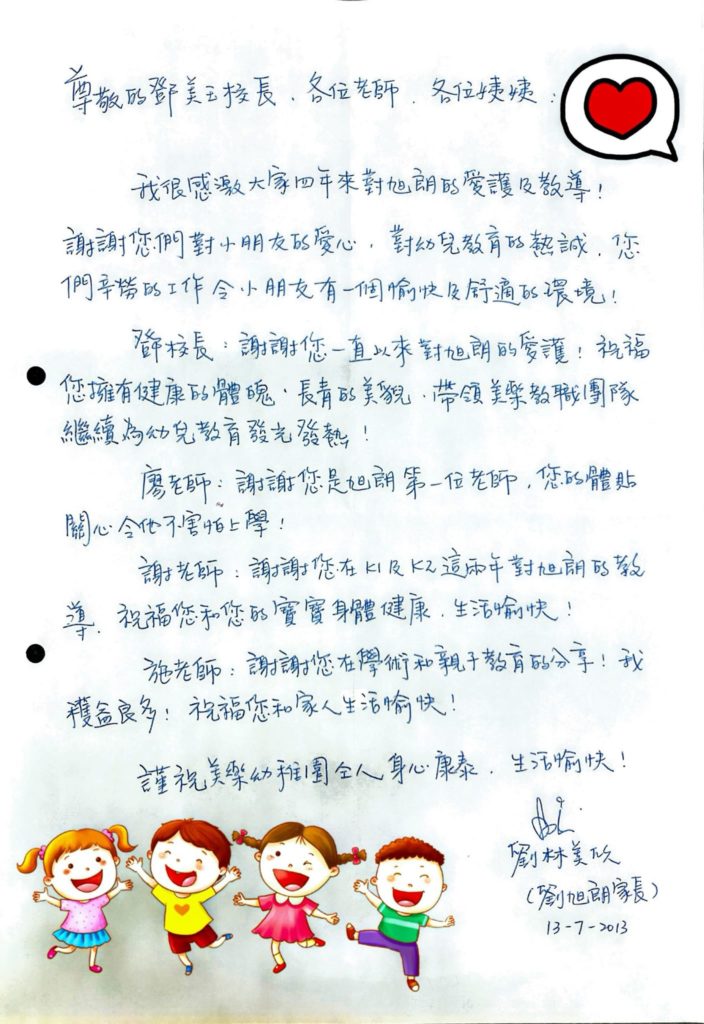 尊敬的鄧美玉校長、各位老師、各位姨姨：
我很感激大家四年來對旭朗的愛護及教導！
謝謝您們對小朋友的愛心，對幼兒教育的熱誠，您
們辛勞的工作令小朋友有一個愉快及舒適的環境！
鄧校長：謝謝您一直以來對旭朗的愛護！祝福
您擁有健康的體魄、長青的美貌，帶領美樂教職團隊
繼續為幼兒教育發光發熱！
廖老師：謝謝您是旭朗第一位老師，您的體貼
關心令他不害怕上學！
謝老師：謝謝您在K1及K2這兩年對旭朗的教
導，祝福您和您的寶寶身體健康，生活愉快！
施老師：謝謝您在學術和親子教育的分享！我
穫益良多！祝福您和家人生活愉快！
謹祝美樂幼稚園仝人身心康泰，生活愉快！
劉林美欣
（劉旭朗家長）
13-7-2013